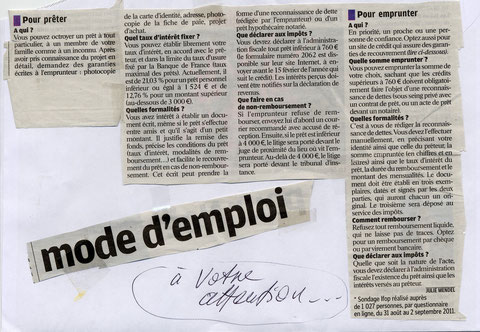 Pour prêter
A qui ?
Vous pouvez octroyer un prêt à tout
particulier, à un membre de votre
famille comme à un inconnu. Après
avoir pris connaissance du projet en
détail, demandez des garanties
écrites à l'emprunteur : photocopie
de la carte d'identité, adresse, photo-
copie de la fiche de paie, projet
d'achat.
Quel taux d'intérêt fixer ?
Vous pouvez établir librement votre
taux d'intérêt, en accord avec le prê-
teur, et dans la limite du taux d'usure
fixé par la Banque de France (taux
maximal des prêts). Actuellement, il
est de 21,03 % pour un prêt personnel
inférieur ou égal à 1 524 € et de
12,76 % pour un montant supérieur
(au-dessus de 3 000 €).
Quelles formalités ?
Vous avez intérêt à établir un docu-
ment écrit, même si le prêt s'effectue
entre amis et qu'il s'agit d'un petit
montant. Il justifie la remise des
fonds, précise les conditions du prêt
(taux d'intérêt, modalités de rem-
boursement…) et facilite le recouvre-
ment du prêt en cas de non-rembour-
sement. Cet écrit peut prendre la
forme d'une reconnaissance de dette
rédigée par l'emprunteur ou d'un
prêt hypothécaire notarié.
Que déclarer aux impôts ?
Vous devez déclarer à l'administration
fiscale tout prêt inférieur à 760 €
de formulaire numéro 2062 est dispo-
nible sur leur site Internet, à
envoyer avant le 15 février de l'année qui
suit le crédit. Les intérêts perçus doivent
être notifiés sur la déclaration de
revenus.
Que faire en cas
de non-remboursement ?
Si l'emprunteur refuse de rem-
bourser, envoyez lui d'abord un cour-
rier recommandé avec accusé de ré-
ception. Ensuite, si le prêt est inférieur
à 4 000 €, le litige sera porté devant le
juge de proximité du lieu où vit l'em-
prunteur. Au-delà de 4 000 €, le litige
sera porté devant le tribunal d'ins-
tance.
Pour emprunter
A qui ?
En priorité, un proche ou une per-
sonne de confiance. Optez aussi pour
un site de crédit qui assure des garan-
ties de recouvrement (lire ci-dessous).
Quelle somme emprunter ?
Vous pouvez emprunter la somme de
votre choix, sachant que les crédits
supérieurs à 760 € doivent obligatoire-
ment faire l'objet d'une reconnais-
sance de dettes (sous seing privé avec
un contrat de prêt, ou un acte de prêt
devant un notaire).
Quelles formalités ?
C'est à vous de rédiger la reconnais-
sance de dettes. Vous devez l'effectuer
manuellement, en précisant votre
identité ainsi que celle du prêteur, la
somme empruntée (en chiffres et en
lettres) ainsi que le taux d'intérêt du
prêt, la durée du remboursement et le
montant des mensualités. Le docu-
ment doit être établi en trois exem-
plaires, datés et signés par les deux
parties, qui auront chacun un origi-
nal. Le troisième sera déposé au
service des impôts.
Comment rembourser ?
Refusez tout remboursement liquide,
qui ne laisse pas de traces. Optez
pour un remboursement par chèque
ou par virement bancaire.
Que déclarer aux impôts ?
Quelle que soit la nature de l'acte,
vous devez déclarer à l'administration
fiscale l'existence du prêt ainsi que les
intérêts versés au prêteur.
JULIE MENDEL
* Sondage Ifop réalisé auprès
de 1 027 personnes, par questionnaire
en ligne, du 31 août au 2 septembre 2011.
mode d'emploi
à votre
attention...